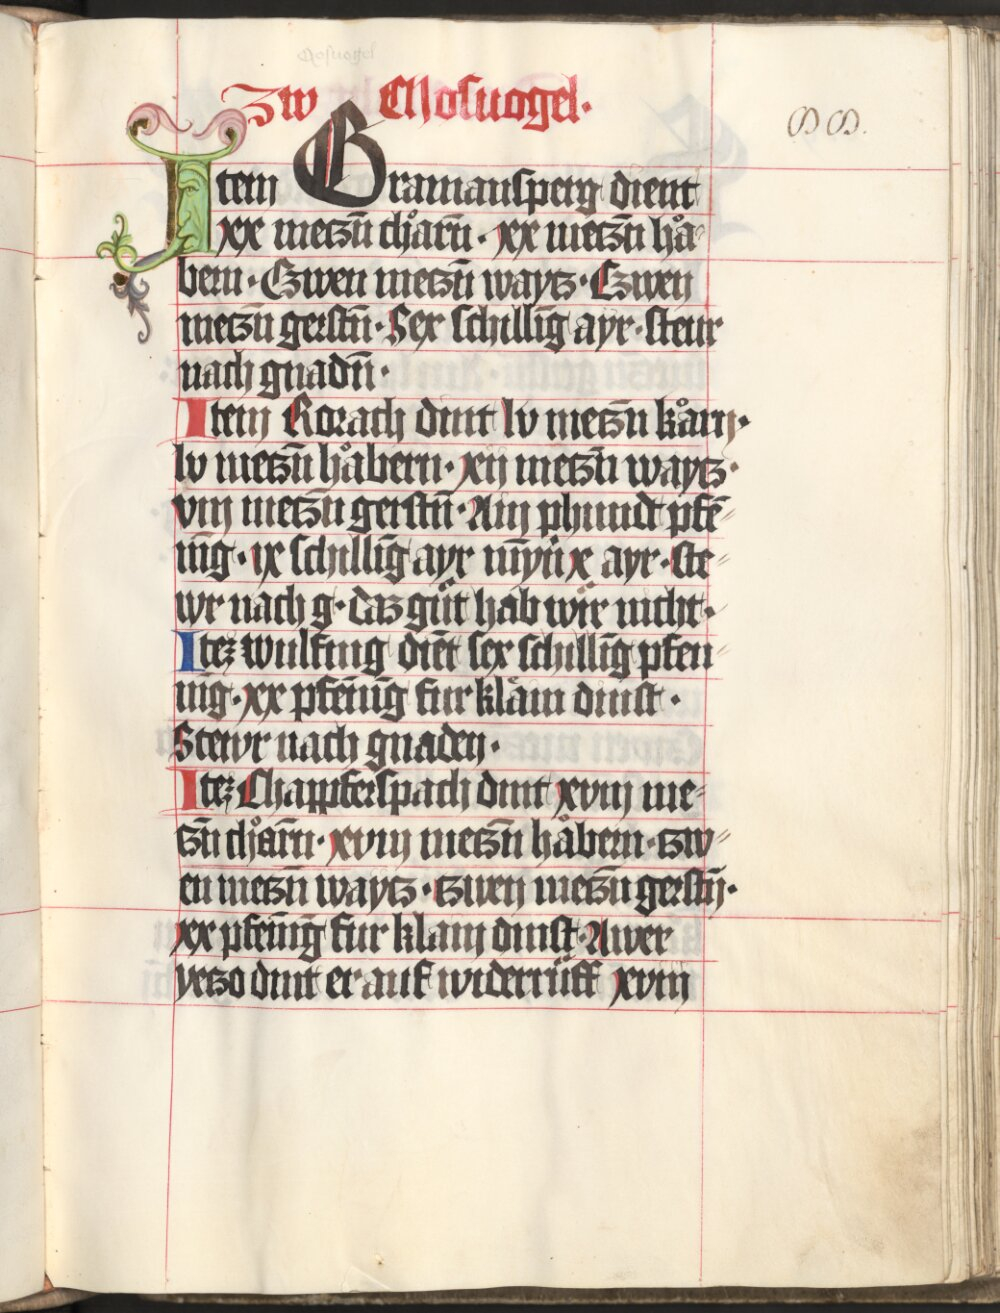 Mosuogel
Zw Mosuogel.
Item Gramansperg dient
xx meczn̄ chåꝛn̄ · xx meczn̄ hå-
bern · Czwen meczn̄ waycz · Czwen
meczn̄ gerstn̄ · Sex schillinḡ ayr · steur
nach gnadn̄ ·
Item Rorach dint lv meczn̄ kåꝛn ·
lv meczn̄ håbern · xij meczn̄ waycz ·
viij meczn̄ gerstn̄ · Ain phundt pfē-
nīg · ix schillinḡ ayr mȳn x ayr · ste-
wr nach g · daz güt hab wir nicht ·
Iteꝫ wulfing diēt sex schillinḡ pfen-
nīg · xx pfēnīg fur klain dinst ·
Stewr nach gnaden ·
Iteꝫ Chappferspach dint xviij me-
czn̄ chåꝛn̄ · xviij meczn̄ håbern · czw-
en meczn̄ wäycz · czwen meczn̄ gerstn̄ ·
xx pfēnīg fur klain dinst · Awer
yeczo dint er auf widerrüff xviij